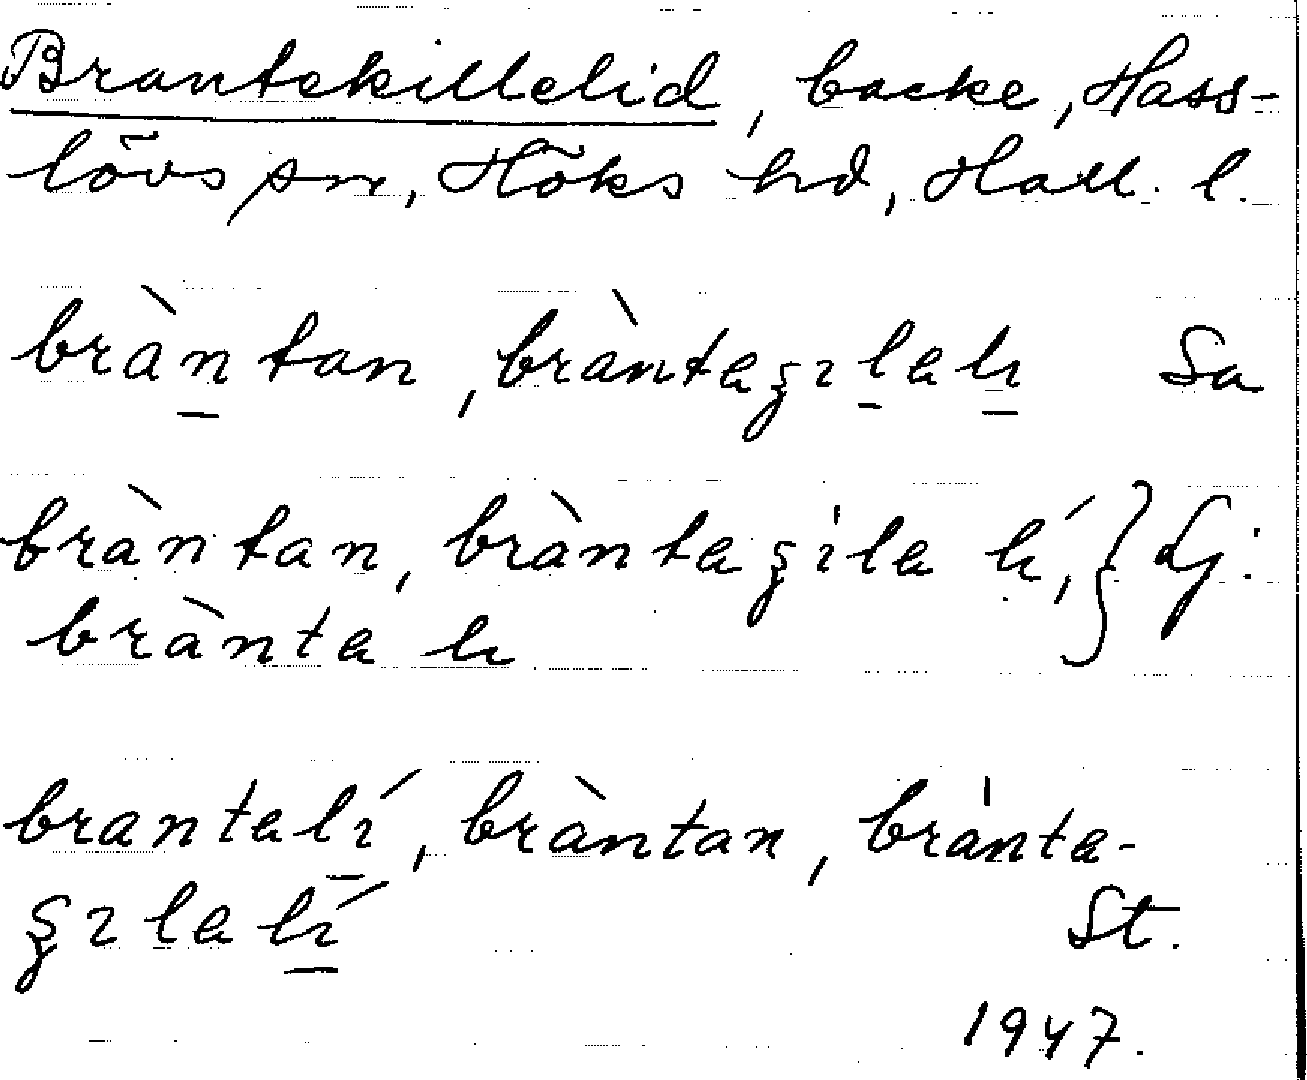 Brantekillelid, backe, Hass-
lövs sn, Höks hd, Hall. l.
bràn tan, bràntaȿılalı Sa
bràn tan, bràntaȿıla lí,
brànta lı
brantalí, bràntan, brànta-
ȿılalí St.
1947.